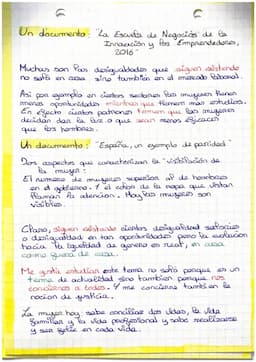 Un documento: "La Escuela de Negocios de la
Innovación y los Emprendedores,
2016"
Muchas son las desigualdades que siguen existiendo
no solo en casa sino también en el mercado laboral.
Así por ejemplo en ciertos sectores las mujeres tienen
menos oportunidades mientras que tienen más estudios.
En efecto ciertos patrones temen que las mujeres
decidan dar la luz o que sean menos eficaces
que los hombres.
Un documento: "España, un ejemplo de paridad"
Dos aspectos que caracterizan la "visibilización de
la mujer:
El número de mujeres superior al de hombres
en el gobierno. Y el echo de la ropa que vistan
llaman la atención. Hoy las mujeres son
visibles.
Claro, siguen existiendo ciertas desigualdad salarias
o desigualdad en las oportunidades pero la evolución
hacia la igualdad de género es real, en casa
como fuera de casa.
Me gusta estudiar este tema no solo porque es un
tema de actualidad sino también porque nos
concierne a todos. Y me concierne también la
noción de justicia.
La mujer hoy sabe conciliar dos vidas, la vida
familiar y la vida profesional y sabe realizarse
y ser feliz en cada vida.